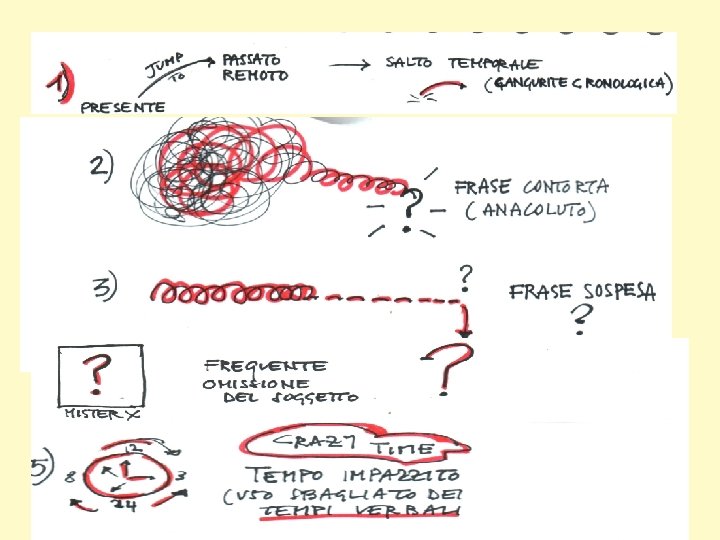 1) PRESENTE JUMP TO PASSATO REMOTO → SALTO TEMPORALE
(CANGURITE CRONOLOGICA)
2)
?
FRASE CONTORTA
(ANACOLUTO)
3)
?
FRASE SOSPESA
?
?
?
MISTER X
FREQUENTE
OMISSIONE
DEL SOGGETTO
5)
12
8 3
24
CRAZY TIME
TEMPO IMPAZZITO
(USO SBAGLIATO DEI
TEMPI VERBALI